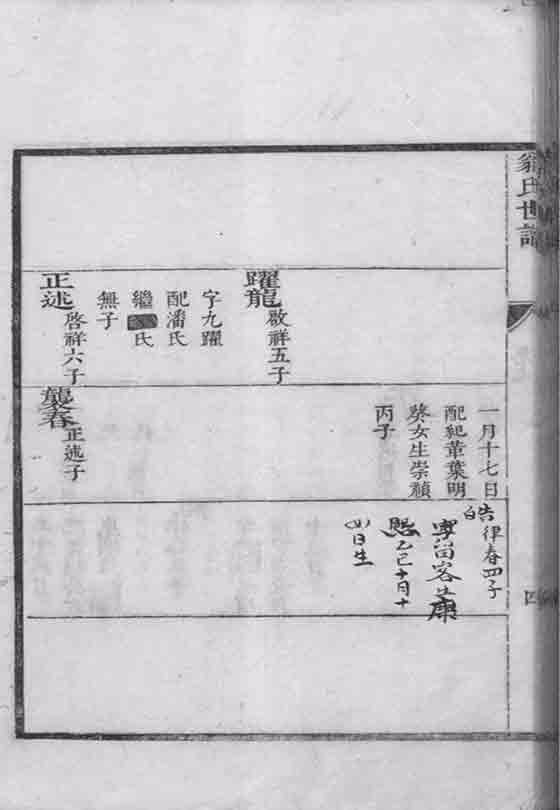 翁氏世譜
四
躍龍
啟祥五子
字九躍
配潘氏
繼 氏
無子
正述
啓祥六子
一月十七日
配葉明
葵女生崇禎
丙子
襲春
正述子
皓
律春四子
字留客生康
熙乙巳十月十
四日生